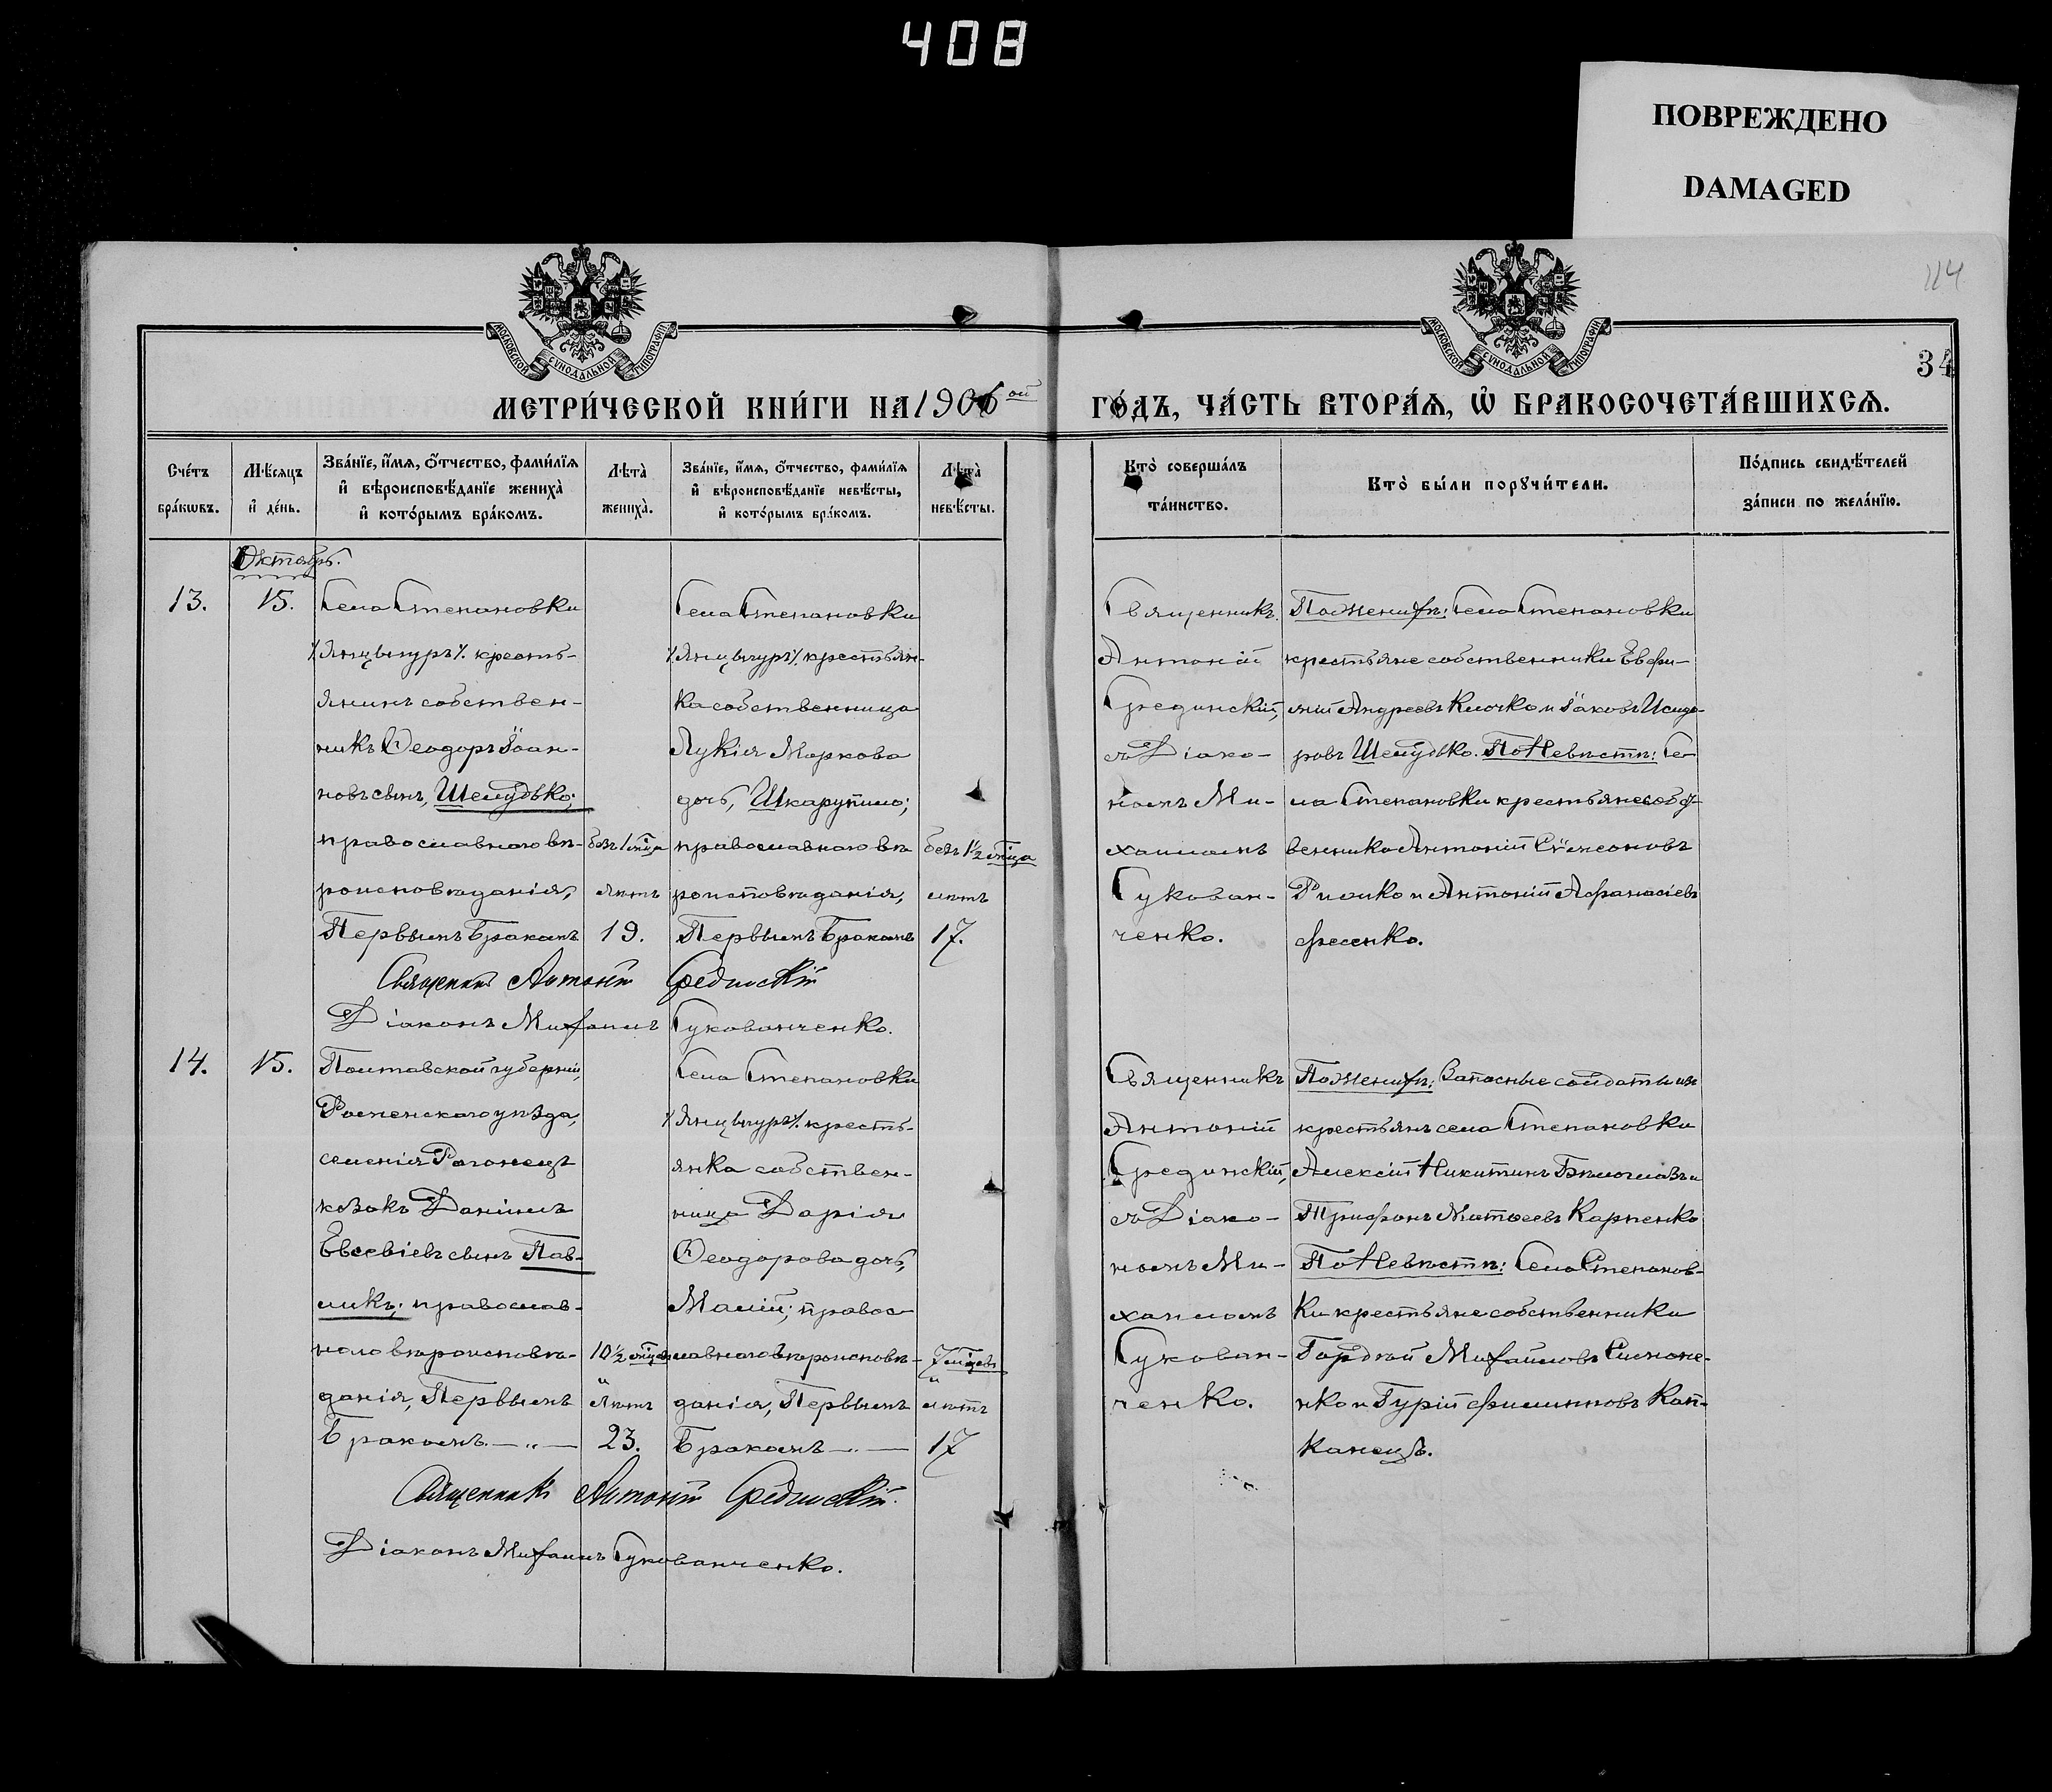 408
ПОВРЕЖДЕНО
DAMAGED
114
34
МОСКОВСКОЙ СУНОДАЛЬНОЙ ТИПОГРАФІИ
МОСКОВСКОЙ СУНОДАЛЬНОЙ ТИПОГРАФІИ
МЕТРИ́ЧЕСКОЙ КНИ́ГИ НА 1906 ой ГО́ДЪ, ЧА́СТЬ ВТОРА́Ѧ, Ѡ҆ БРАКОСОЧЕТА́ВШИХСѦ.
Сче́тъ бра́кѡвъ.
Мѣ́сяцъ и҆ де́нь.
Зва́нїе, и҆́мѧ, ѻ҆́тчество, фами́лїѧ
и҆ вѣроисповѣ́данїе жениха̀
и҆ кото́рымъ бра́комъ.
Лѣта̀ жениха̀.
Зва́нїе, и҆́мѧ, ѻ҆́тчество, фами́лїѧ
и҆ вѣроисповѣ́данїе невѣ́сты,
и҆ кото́рымъ бра́комъ.
Лѣта̀ невѣ́сты.
Кто̀ соверша́лъ та́инство.
Кто̀ бы́ли порꙋчи́тели.
По́дпись свидѣ́телей
за́писи по жела́нїю.
Октябрь.
13.
15.
Села Степановки
/:Янцылуръ:/ кресть-
янинъ собствен-
никъ Ѳеодоръ Іоан-
новъ сынъ, Шемудько;
православнаго вѣ-
роисповѣданія,
Первымъ Бракомъ
безъ 1 мѣсяца
лѣтъ
19.
Села Степановки
/:Янцылуръ:/ крестьян-
ка собственница
Лукія Маркова
дочь, Шкарупило;
православнаго вѣ
роисповѣданія,
Первымъ Бракомъ
безъ 1½ мѣсяца
лѣтъ
17.
Священникъ
Антоній
Срединскій,
съ Діако-
номъ Ми-
хаиломъ
Сукован-
ченко.
По Женихѣ: Села Степановки
крестьяне собственники Евфи-
мій Андреевъ Клочко и Іаковъ Исидо-
ровъ Шемудько. По Невѣстѣ: Се
ла Степановки крестьяне собст-
венники Антоній Сѵмеоновъ
и Антоній Афанасіевъ
Фесенко.
Священникъ Антоній Срединскій
Діаконъ Михаилъ Сукованченко.
14.
15.
Полтавской губерніи,
Роменскаго уѣзда,
селенія
козакъ Даніилъ
Евсевіевъ сынъ Пав-
ликъ; православ-
наго вѣроисповѣ-
данія, Первымъ
Бракомъ. — „ —
10½ мѣсяцевъ
и
лѣтъ
23.
Села Степановки
/:Янцылуръ:/ кресть-
янка собствен-
ница Дарія
Ѳеодорова дочь,
Малій; правос
лавнаго вѣроисповѣ-
данія, Первымъ
Бракомъ — „ —
7 мѣсяцевъ
и
лѣтъ
17
Священникъ
Антоній
Срединскій,
съ Діако-
номъ Ми-
хаиломъ
Сукован-
ченко.
По Женихѣ: Запасные солдаты изъ
крестьянъ села Степановки
Алексій Никитинъ Бѣлоглазъ и
Трифонъ Матѳеевъ Карпенко
По Невѣстѣ: Села Степанов-
ки крестьяне собственники
Гордѣй Михайловъ Симоне-
нко и Гурій Филипповъ Кап-
канецъ.
Священникъ Антоній Срединскій.
Діаконъ Михаилъ Сукованченко.